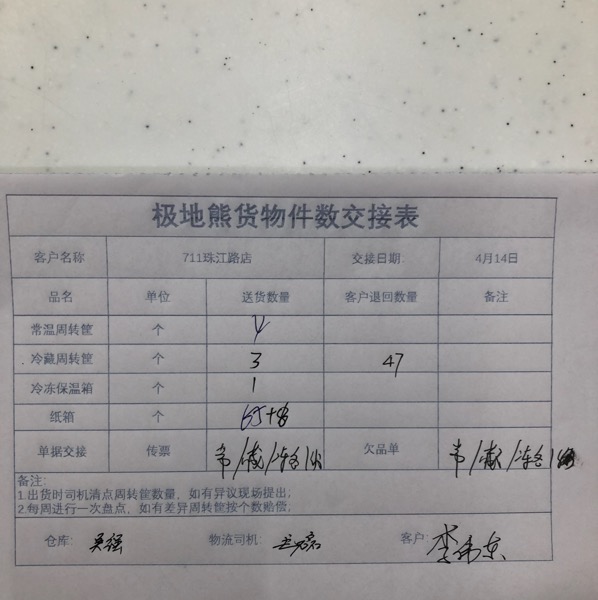 极地熊货物件数交接表
客户名称 711珠江路店 交接日期 4月14日
品名 单位 送货数量 客户退回数量 备注
常温周转筐 个 4
冷藏周转筐 个 3 47
冷冻保温箱 个 1
纸箱 个
单据交接 传票 欠品单
备注:
1.出货时司机清点周转筐数量，如有异议现场提出;
2.每周进行一次盘点，如有差异周转筐按个数赔偿;
仓库: 吴强 物流司机: 客户: 李伟东